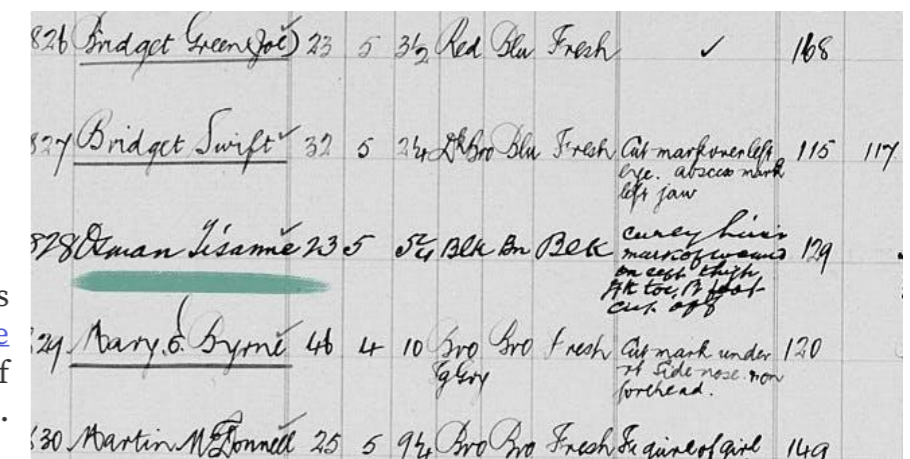 826 Bridget Green (Joe) 23 5 3½ Red Blu Fresh ✓ 168
827 Bridget Swift 32 5 2¼ Dk Bro Blu Fresh Cut mark over left 115 117
eye. abscess mark
left jaw
828 Osman Tisanne 23 5 5¼ Blk Bn Blk curley hair 129
mark of wound
on left thigh
toe foot
cut off
s
e
f
.
829 Mary Byrne 46 4 10 Bro Bro Fresh Cut mark under 120
side nose. on
forehead.
830 Martin McDonnell 25 5 9¼ Bro Bro Fresh Figure of girl 149